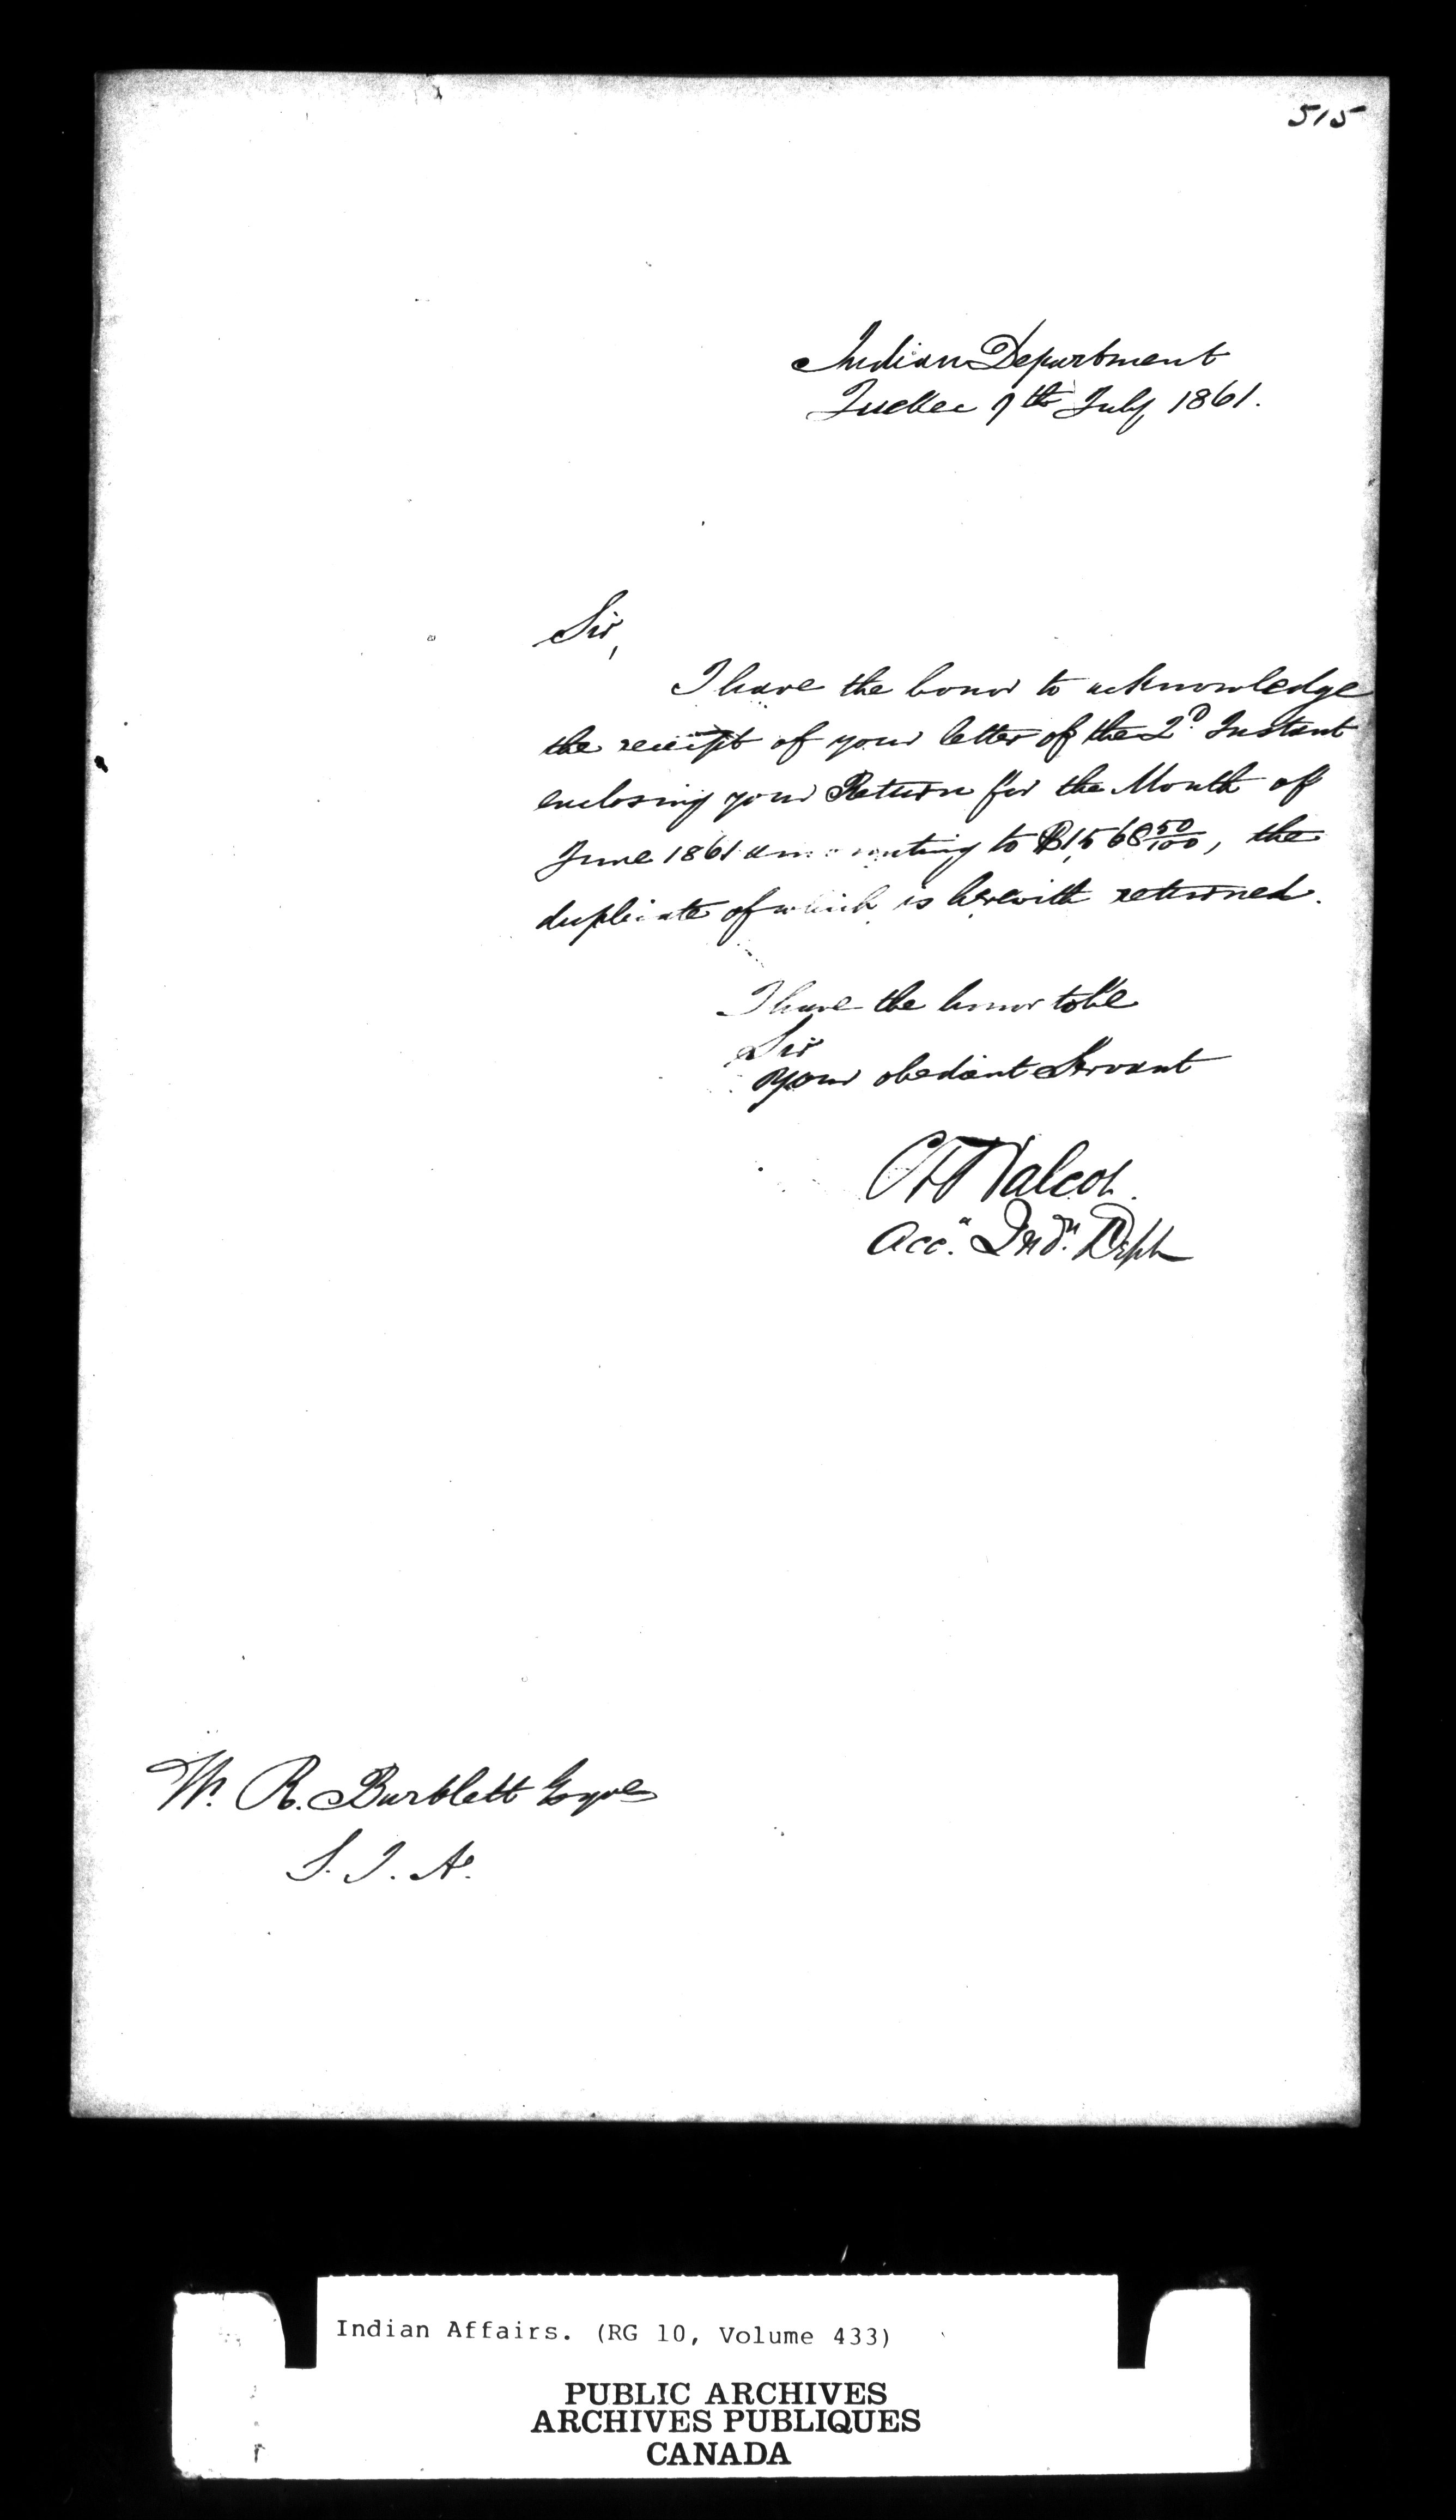 515
Indian Department
Quebec 9th July 1861.
Sir,
I have the honor to acknowledge
the receipt of your letter of the 2d Instant
enclosing your Return for the Month of
June 1861 amounting to $1,568 50/100, the
duplicate of which is herewith returned.
I have the honor to be
Sir
Your obedient Servant
C T Walcot
Acct. Indn. Dept
W. R. Bartlett Esqre
S. I. A.
Indian Affairs. (RG 10, Volume 433)
PUBLIC ARCHIVES
ARCHIVES PUBLIQUES
CANADA